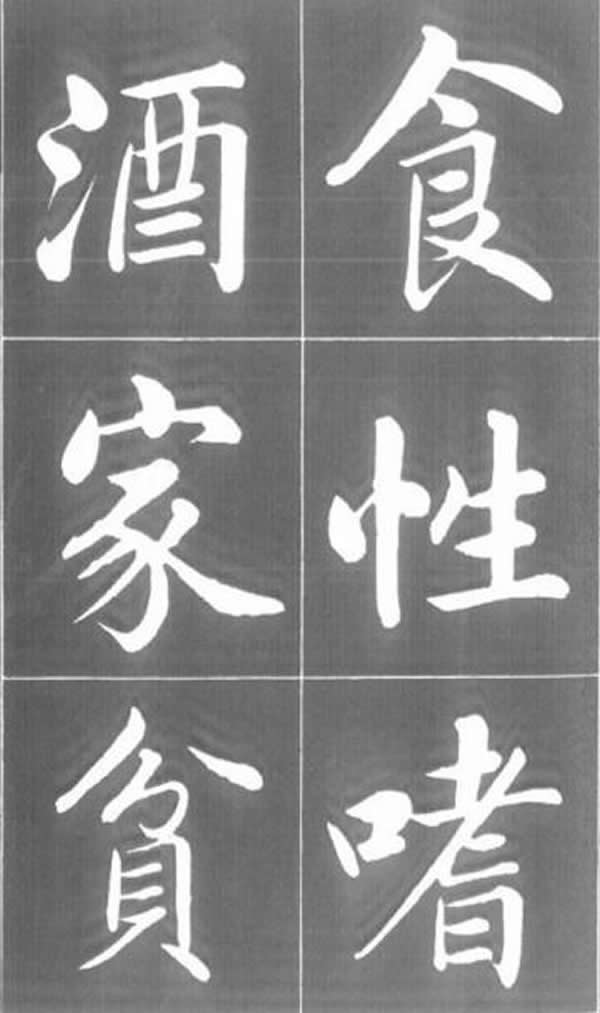 食性嗜
酒家貧